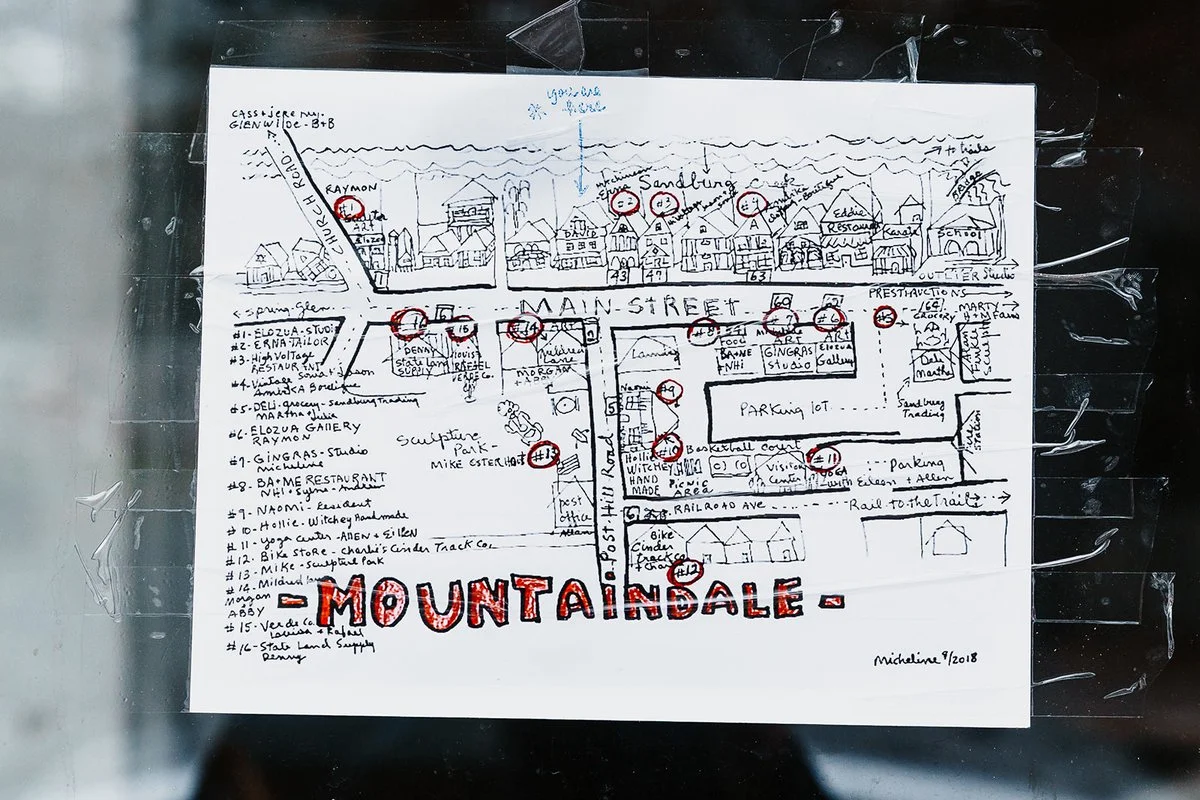 you are
here
CASS + jeremy.
GLENWILDE - B+B
CHURCH ROAD
to trails
Sandburg Creek
RAYMON
#1
ART
#2
#3
#4
DAVID
Eddie
Restaurant
Karate
School
43
47
63
OUTLIER Studio
← Spring Glen
MAIN STREET
PRESTI AUCTIONS
MARTY
#16
#15
#14
ART
#8
60
#7
#6
#5
GROCERY
PENNY
State Land
SUPPLY
Mildred
Lane
MORGAN
FOOD
BA+ME
+NHI
ART
GINGRAS
Studio
ART
Elozua
Gallery
Deli
Martha
Sandburg
Trading
Naomi
#9
PARKing LOT
Sculpture
Park -
MIKE OSTERHOUT
#13
#10
Basketball Court
Hollie
WITCHEY
HAND
MADE
PICNIC
AREA
Visitor
Center
#11
YOGA
with Eileen + Allen
Parking
Fire Station
post
office
Post Hill Road
RAILROAD AVE
Rail to the Trails
6
Bike
Cinder
Track Co
#12
#1 - ELOZUA - STUDIO
#2 - ERNA TAILOR
#3 - High Voltage
RESTAURANT
#4 - Vintage
Boutique
#5 - DELI - grocery - Sandburg Trading
MARTHA + Julia
#6 - ELOZUA GALLERY
RAYMON
#7 - GINGRAS - Studio
Micheline
#8 - BA+ME RESTAURANT
#9 - NAOMI - Resident
#10 - Hollie - Witchey Handmade
#11 - yoga center - ALLEN + EILEEN
#12 - BIKE STORE - Charlie's Cinder Track Co.
#13 - MIKE - Sculpture Park
#14 - Mildred Lane
Morgan
ABBY
#15 - Verde Co.
Louisa + Rafael
#16 - State Land Supply
Penny
- MOUNTAINDALE -
Micheline 9/2018